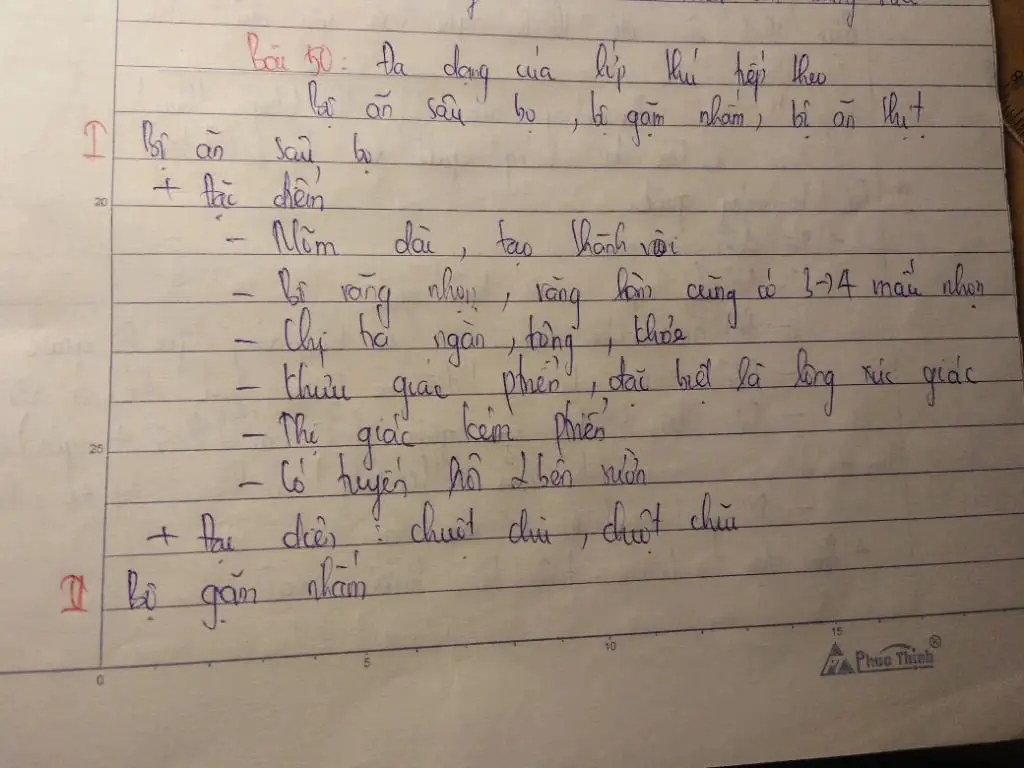 Bài 50: Đa dạng của lớp thú tiếp theo
Bộ ăn sâu bọ, bộ gặm nhấm, bộ ăn thịt
I Bộ ăn sâu bọ
+ Đặc điểm
- Mõm dài, tạo thành vòi
- Bộ răng nhọn, răng hàm cũng có 3→4 mấu nhọn
- Chị trc ngắn, rộng, khỏe
- Khứu giác phiển, đặc biệt là lông xúc giác
- Thị giác kém phiển
- Có tuyến hôi 2 bên sườn
+ Đại diện: chuột chù, chuột chũi
II Bộ gặm nhấm
20
25
0 5 10 15
Phuc Thinh ®